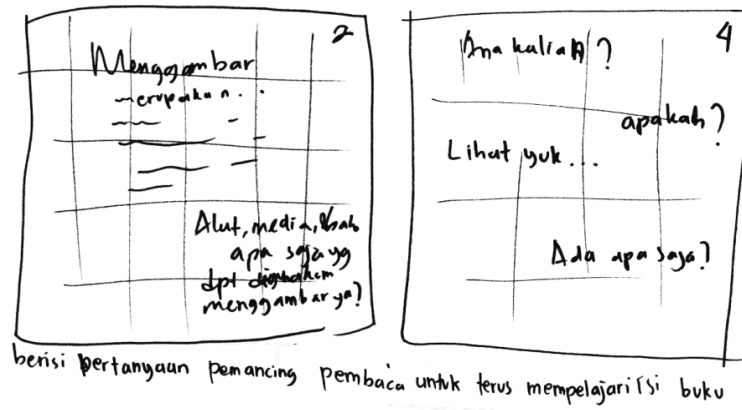 2
Menggambar
merupakan...
Alat, media, &bah
apa saja yg
dpt digunakan
menggambar ya?
4
?
apakah?
Lihat yuk...
Ada apa saja?
berisi pertanyaan pemancing pembaca untuk terus mempelajari isi buku